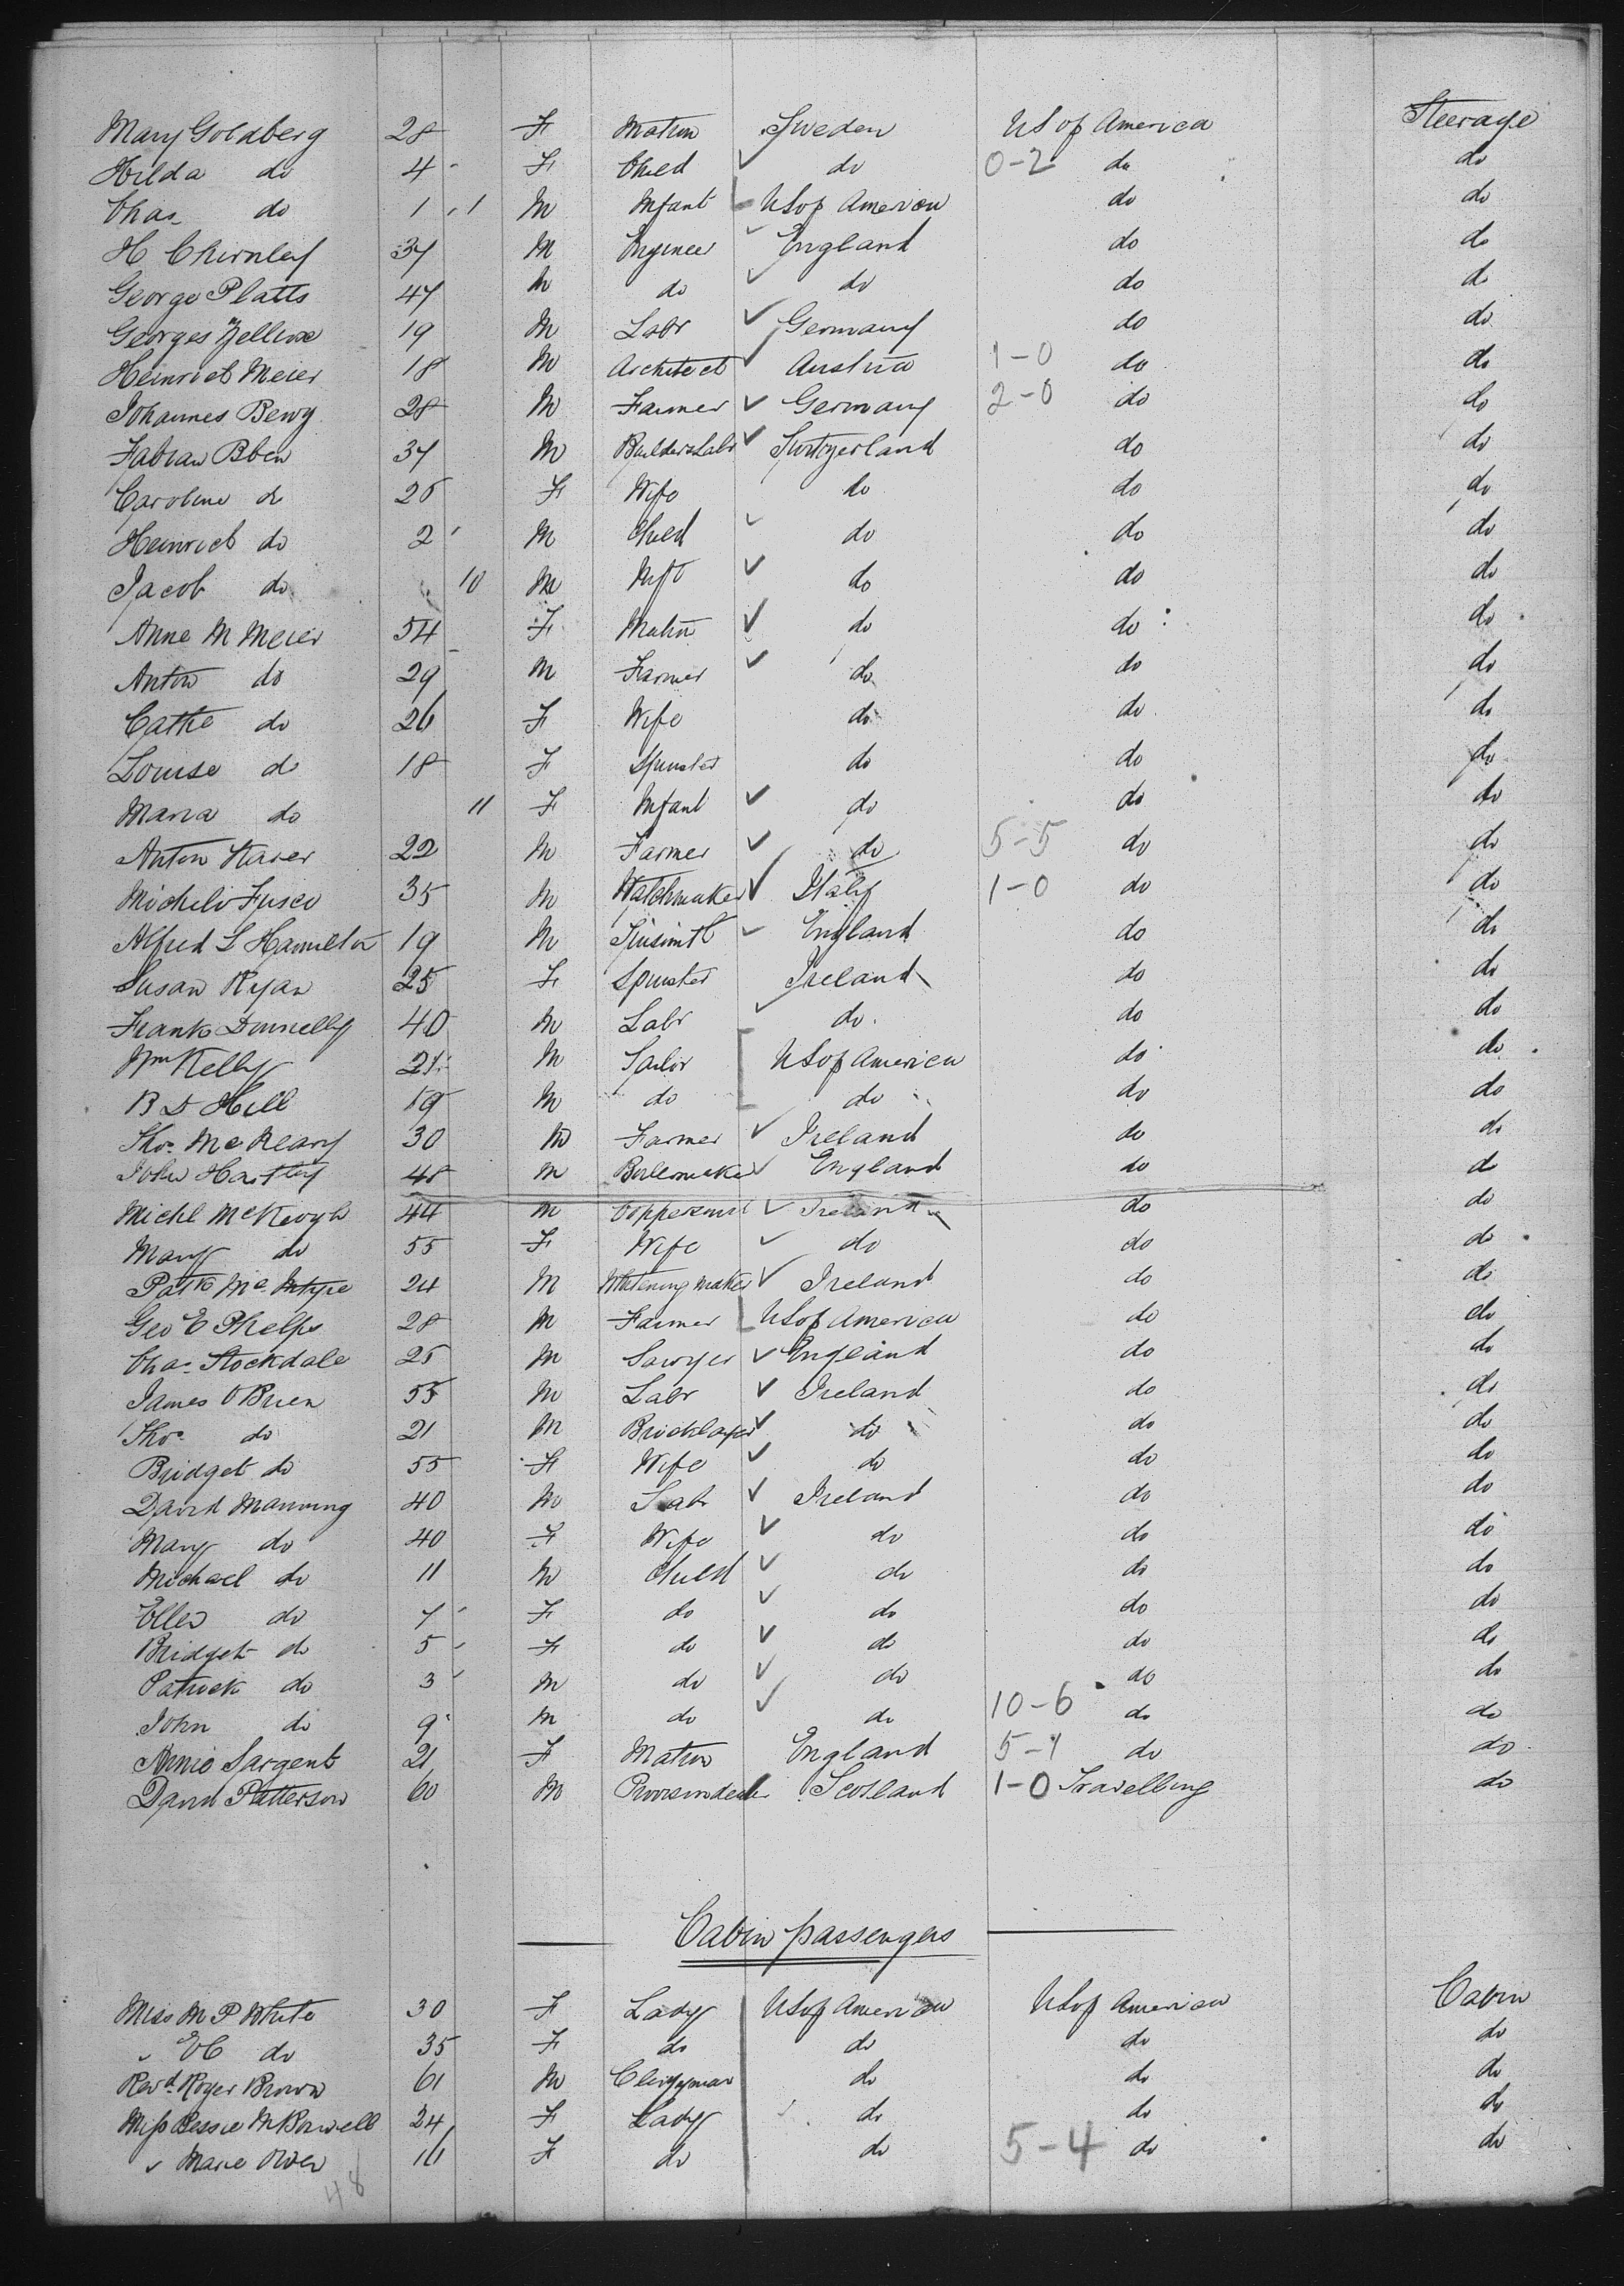 Mary Goldberg 28 F Matron Sweden US of America Steerage
Hilda do 4 F Child do 0-2 do do
Chas do 1 1 M Infant US of America do do
H Chirnley 37 M Engineer England do do
George Platts 47 M do do do do
Georges 19 M Labr Germany do do
Heinrich Meier 18 M Architect Austria 1-0 do do
Johannes Beng 28 M Farmer Germany 2-0 do do
Fabian 37 M Builders Labr Switzerland do do
Caroline do 26 F Wife do do do
Heinrich do 2 M Child do do do
Jacob do 10 M Inft do do do
Anne M Meier 54 F Matrn do do do
Anton do 29 M Farmer do do do
Cathe do 26 F Wife do do do
Louise do 18 F Spinster do do do
Maria do 11 F Infant do do do
Anton 22 M Farmer do 5-5 do do
Michele Fusco 35 M Watchmaker Italy 1-0 do do
Alfred L Hamilton 19 M Tinsmith England do do
Susan Ryan 25 F Spinster Ireland do do
Frank Donnelly 40 M Labr do do do
Wm Kelly 21 M Sailor US of America do do
B D Hill 19 M do do do do
Thos McNeary 30 M Farmer Ireland do do
John Hartley 48 M Boilermaker England do do
Michl McKeogh 44 M Coppersmit Ireland do do
Mary do 55 F Wife do do do
Patk Mc Intyre 24 M Whitening maker Ireland do do
Geo E Phelps 28 M Farmer US of America do do
Chas Stockdale 25 M Sawyer England do do
James OBrien 55 M Labr Ireland do do
Thos do 21 M Bricklayer do do do
Bridget do 55 F Wife do do do
David Manning 40 M Labr Ireland do do
Mary do 40 F Wife do do do
Michael do 11 M Child do do do
Ellen do 7 F do do do do
Bridget do 5 F do do do do
Patrick do 3 M do do do do
John do 9 M do do 10-6 do do
Annie Sargent 21 F Matron England 5-1 do do
David Patterson 60 M Provision dealer Scotland 1-0 Travelling do
Cabin passengers
Miss M P White 30 F Lady US of American US of American Cabin
" EC do 35 F do do do do
Revd Roger Brown 61 M Clergyman do do do
Miss Bessie M Bowell 24 F Lady do do do
" Marie Owen 16 F do do 5-4 do do
48